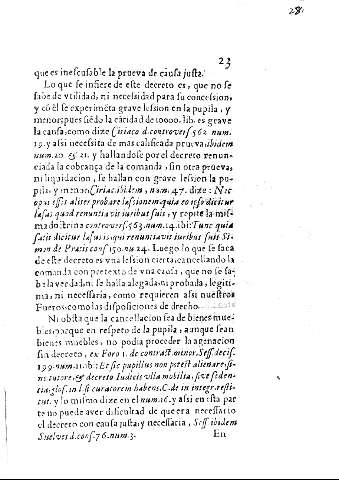 28.
23
que es inescusable la prueva de causa justa.
Lo que se infiere de este decreto es, que no se
sabe de vtilidad, ni necessidad para su concession,
y cõ èl se experimẽta grave lession en la pupila, y
menor, pues siẽdo la cãtidad de 10000. lib. es grave
la causa, como dize Ciriaco d. controvers. 562. num.
19. y assi necessita de mas calificada prueva, ibidem
num. 20. & 21. y hallandose por el decreto renun-
ciada la cobrança de la comanda, sin otra prueva,
ni liquidacion, se hallan con grave lession la pu-
pila, y menor Ciriac. ibidem, num. 47. dize: Nec
opus est aliter probare læsionem, quia eo ipso dicitur
læsus quod renuntiavit iuribus suis, y repite la mis-
ma doctrina controvers. 563. num. 14. ibi: Tunc quia
satis dicitur læsus is qui renuntiavit iuribus suis Si-
mon de Pratis cons. 150. nu. 24. Luego lo que se saca
de este decreto es vna lession cierta, cancellando la
comanda con pretexto de vna causa, que no se sa-
be la verdad, ni se halla alegada, ni probada, legiti-
ma, ni necessaria, como requieren assi nuestros
Fueros, como las disposiciones de drecho.
Ni obsta que la cancellacion sea de bienes mue-
bles, porque en respeto de la pupila, aunque sean
bienes muebles, no podia proceder la agenacion
sin decreto, ex Foro 1. de contract. minor. Sess. decis.
199. num. 11. ibi: Et sic pupillus non potest alienare, si-
ne tutore, & decreto Iudicis vlla mobilia, sive si den-
tia, glos. in l. si curatorem habens, C. de in integr. resti-
tut. y lo mismo dize en el num. 16. y assi en esta par
te no puede aver dificultad de que era necessario
el decreto con causa justa, y necessaria, Sess. ibidem
Suelves d. cons. 76. num. 3.
En